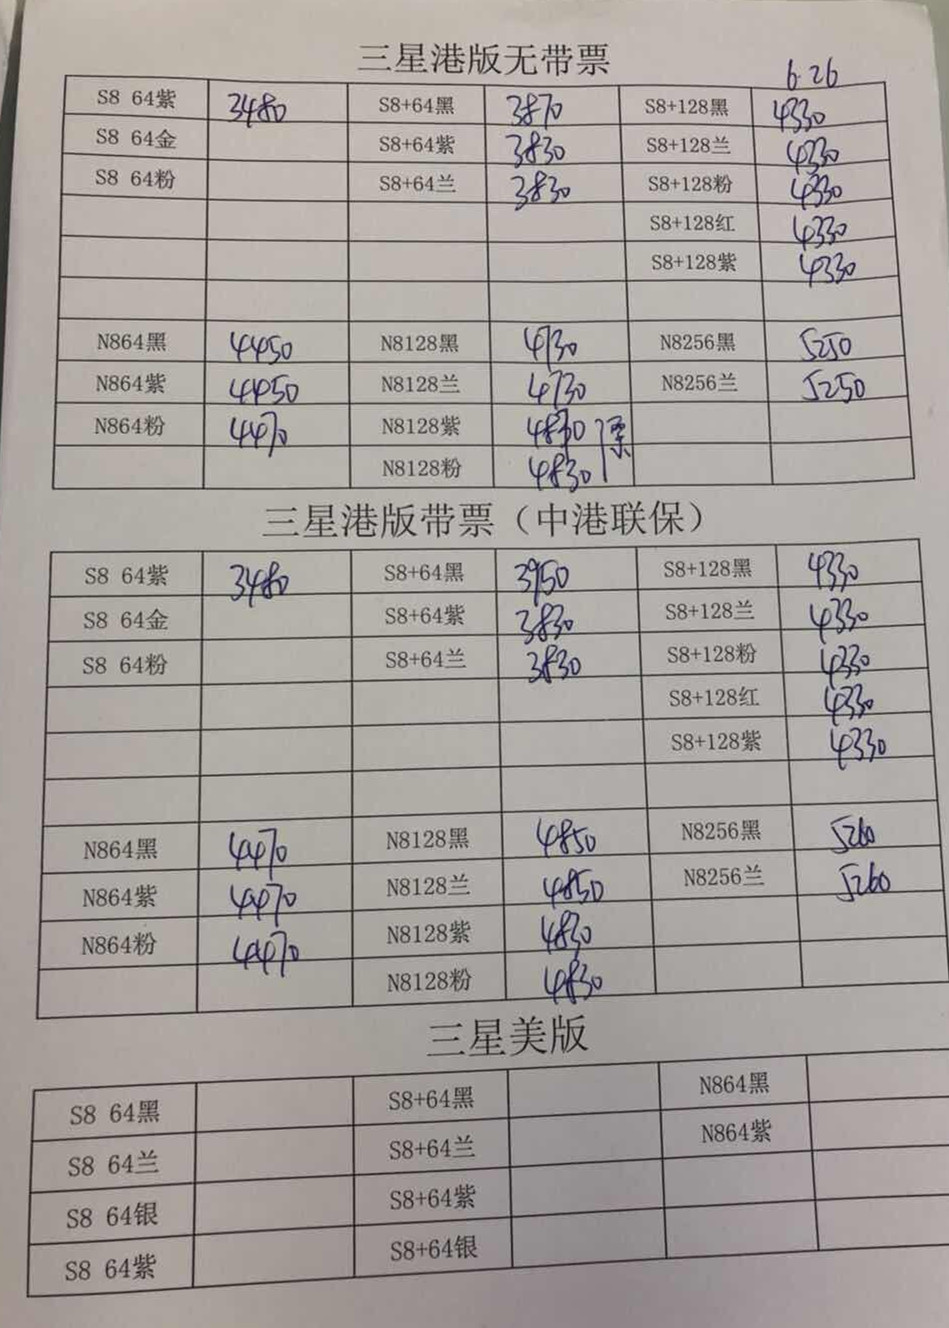 三星港版无带票
6.26
S8 64紫 3480 S8+64黑 3870 S8+128黑 4330
S8 64金 S8+64紫 3830 S8+128兰 4330
S8 64粉 S8+64兰 3830 S8+128粉 4330
S8+128红 4330
S8+128紫 4330
N864黑 4450 N8128黑 4730 N8256黑 5250
N864紫 4450 N8128兰 4730 N8256兰 5250
N864粉 4470 N8128紫 4830
N8128粉 4830
三星港版带票（中港联保）
S8 64紫 3480 S8+64黑 3950 S8+128黑 4330
S8 64金 S8+64紫 3830 S8+128兰 4330
S8 64粉 S8+64兰 3830 S8+128粉 4330
S8+128红 4330
S8+128紫 4330
N864黑 4470 N8128黑 4850 N8256黑 5260
N864紫 4470 N8128兰 4850 N8256兰 5260
N864粉 4470 N8128紫 4830
N8128粉 4830
三星美版
S8 64黑 S8+64黑 N864黑
S8 64兰 S8+64兰 N864紫
S8 64银 S8+64紫
S8 64紫 S8+64银